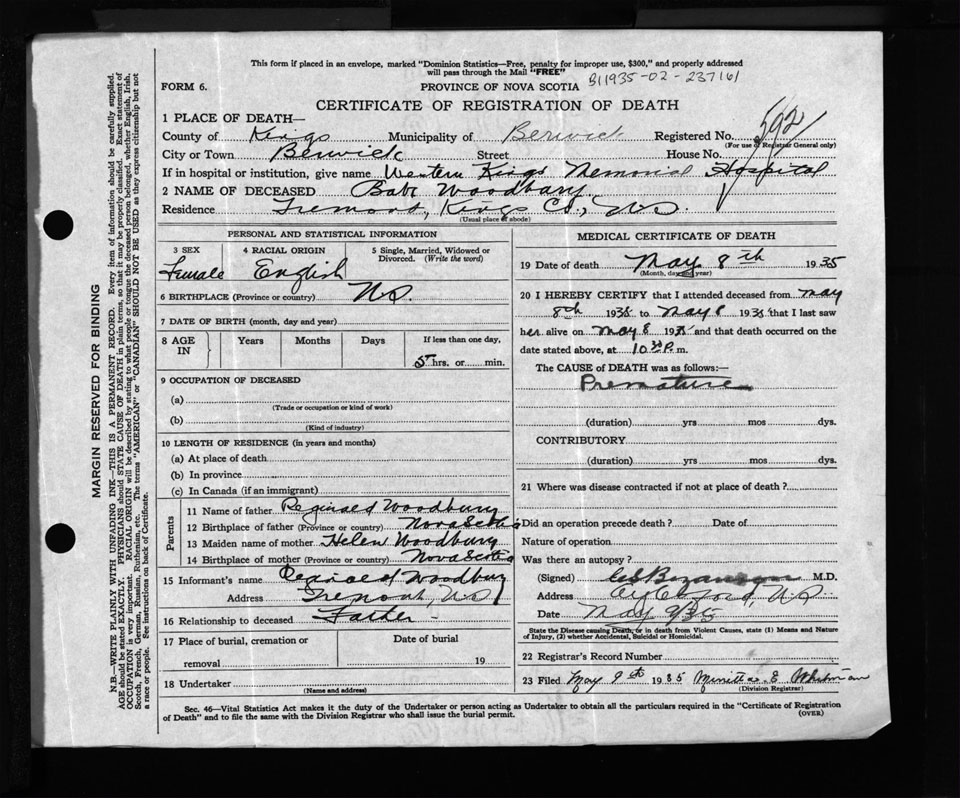 This form if placed in an envelope, marked "Dominion Statistics—Free, penalty for improper use, $300," and properly addressed
will pass through the Mail "FREE"
B11935-02-237161
FORM 6.
PROVINCE OF NOVA SCOTIA
CERTIFICATE OF REGISTRATION OF DEATH
1 PLACE OF DEATH—
County of Kings Municipality of Berwick Registered No. 592
(For use of Registrar General only)
City or Town Berwick Street House No.
If in hospital or institution, give name Western Kings Memorial Hospital
2 NAME OF DECEASED Babe Woodbury
Residence Tremont, Kings Co., N.S.
(Usual place of abode)
PERSONAL AND STATISTICAL INFORMATION
3 SEX 4 RACIAL ORIGIN 5 Single, Married, Widowed or
Divorced. (Write the word)
Female English
6 BIRTHPLACE (Province or country) N.S.
7 DATE OF BIRTH (month, day and year)
8 AGE IN Years Months Days If less than one day,
5 hrs. or min.
9 OCCUPATION OF DECEASED
(a)
(Trade or occupation or kind of work)
(b)
(Kind of industry)
10 LENGTH OF RESIDENCE (in years and months)
(a) At place of death
(b) In province
(c) In Canada (if an immigrant)
Parents
11 Name of father Reginald Woodbury
12 Birthplace of father (Province or country) Nova Scotia
13 Maiden name of mother Helen Woodbury
14 Birthplace of mother (Province or country) Nova Scotia
15 Informant's name Reginald Woodbury
Address Tremont, N.S.
16 Relationship to deceased Father
17 Place of burial, cremation or Date of burial
removal 19
18 Undertaker
(Name and address)
MEDICAL CERTIFICATE OF DEATH
19 Date of death May 8th 1935
(Month, day and year)
20 I HEREBY CERTIFY that I attended deceased from May
8th 1935 to May 8 1935 that I last saw
her alive on May 8 1935 and that death occurred on the
date stated above, at 10 P.m.
The CAUSE of DEATH was as follows:—
Premature
(duration) yrs mos dys.
CONTRIBUTORY
(duration) yrs mos dys.
21 Where was disease contracted if not at place of death?
Did an operation precede death? Date of
Nature of operation
Was there an autopsy?
(Signed) Bezanson M.D.
Address Aylesford, N.S.
Date May 9/35
State the Disease causing Death, or in death from Violent Causes, state (1) Means and Nature
of Injury, (2) whether Accidental, Suicidal or Homicidal.
22 Registrar's Record Number
23 Filed May 9th 1935 E Whitman
(Division Registrar)
Sec. 46—Vital Statistics Act makes it the duty of the Undertaker or person acting as Undertaker to obtain all the particulars required in the "Certificate of Registration
of Death" and to file the same with the Division Registrar who shall issue the burial permit. (OVER)
MARGIN RESERVED FOR BINDING
N.B.—WRITE PLAINLY WITH UNFADING INK—THIS IS A PERMANENT RECORD. Every item of information should be carefully supplied.
AGE should be stated EXACTLY. PHYSICIANS should STATE CAUSE OF DEATH in plain terms, so that it may be properly classified. Exact statement of
OCCUPATION is very important. RACIAL ORIGIN will be described by stating to what people or tongue the deceased person belonged, whether English, Irish,
Scotch, French, German, Russian, Ruthenian, etc. The terms "AMERICAN" or "CANADIAN" SHOULD NOT BE USED as they express citizenship but not
a race or people. See instructions on back of Certificate.